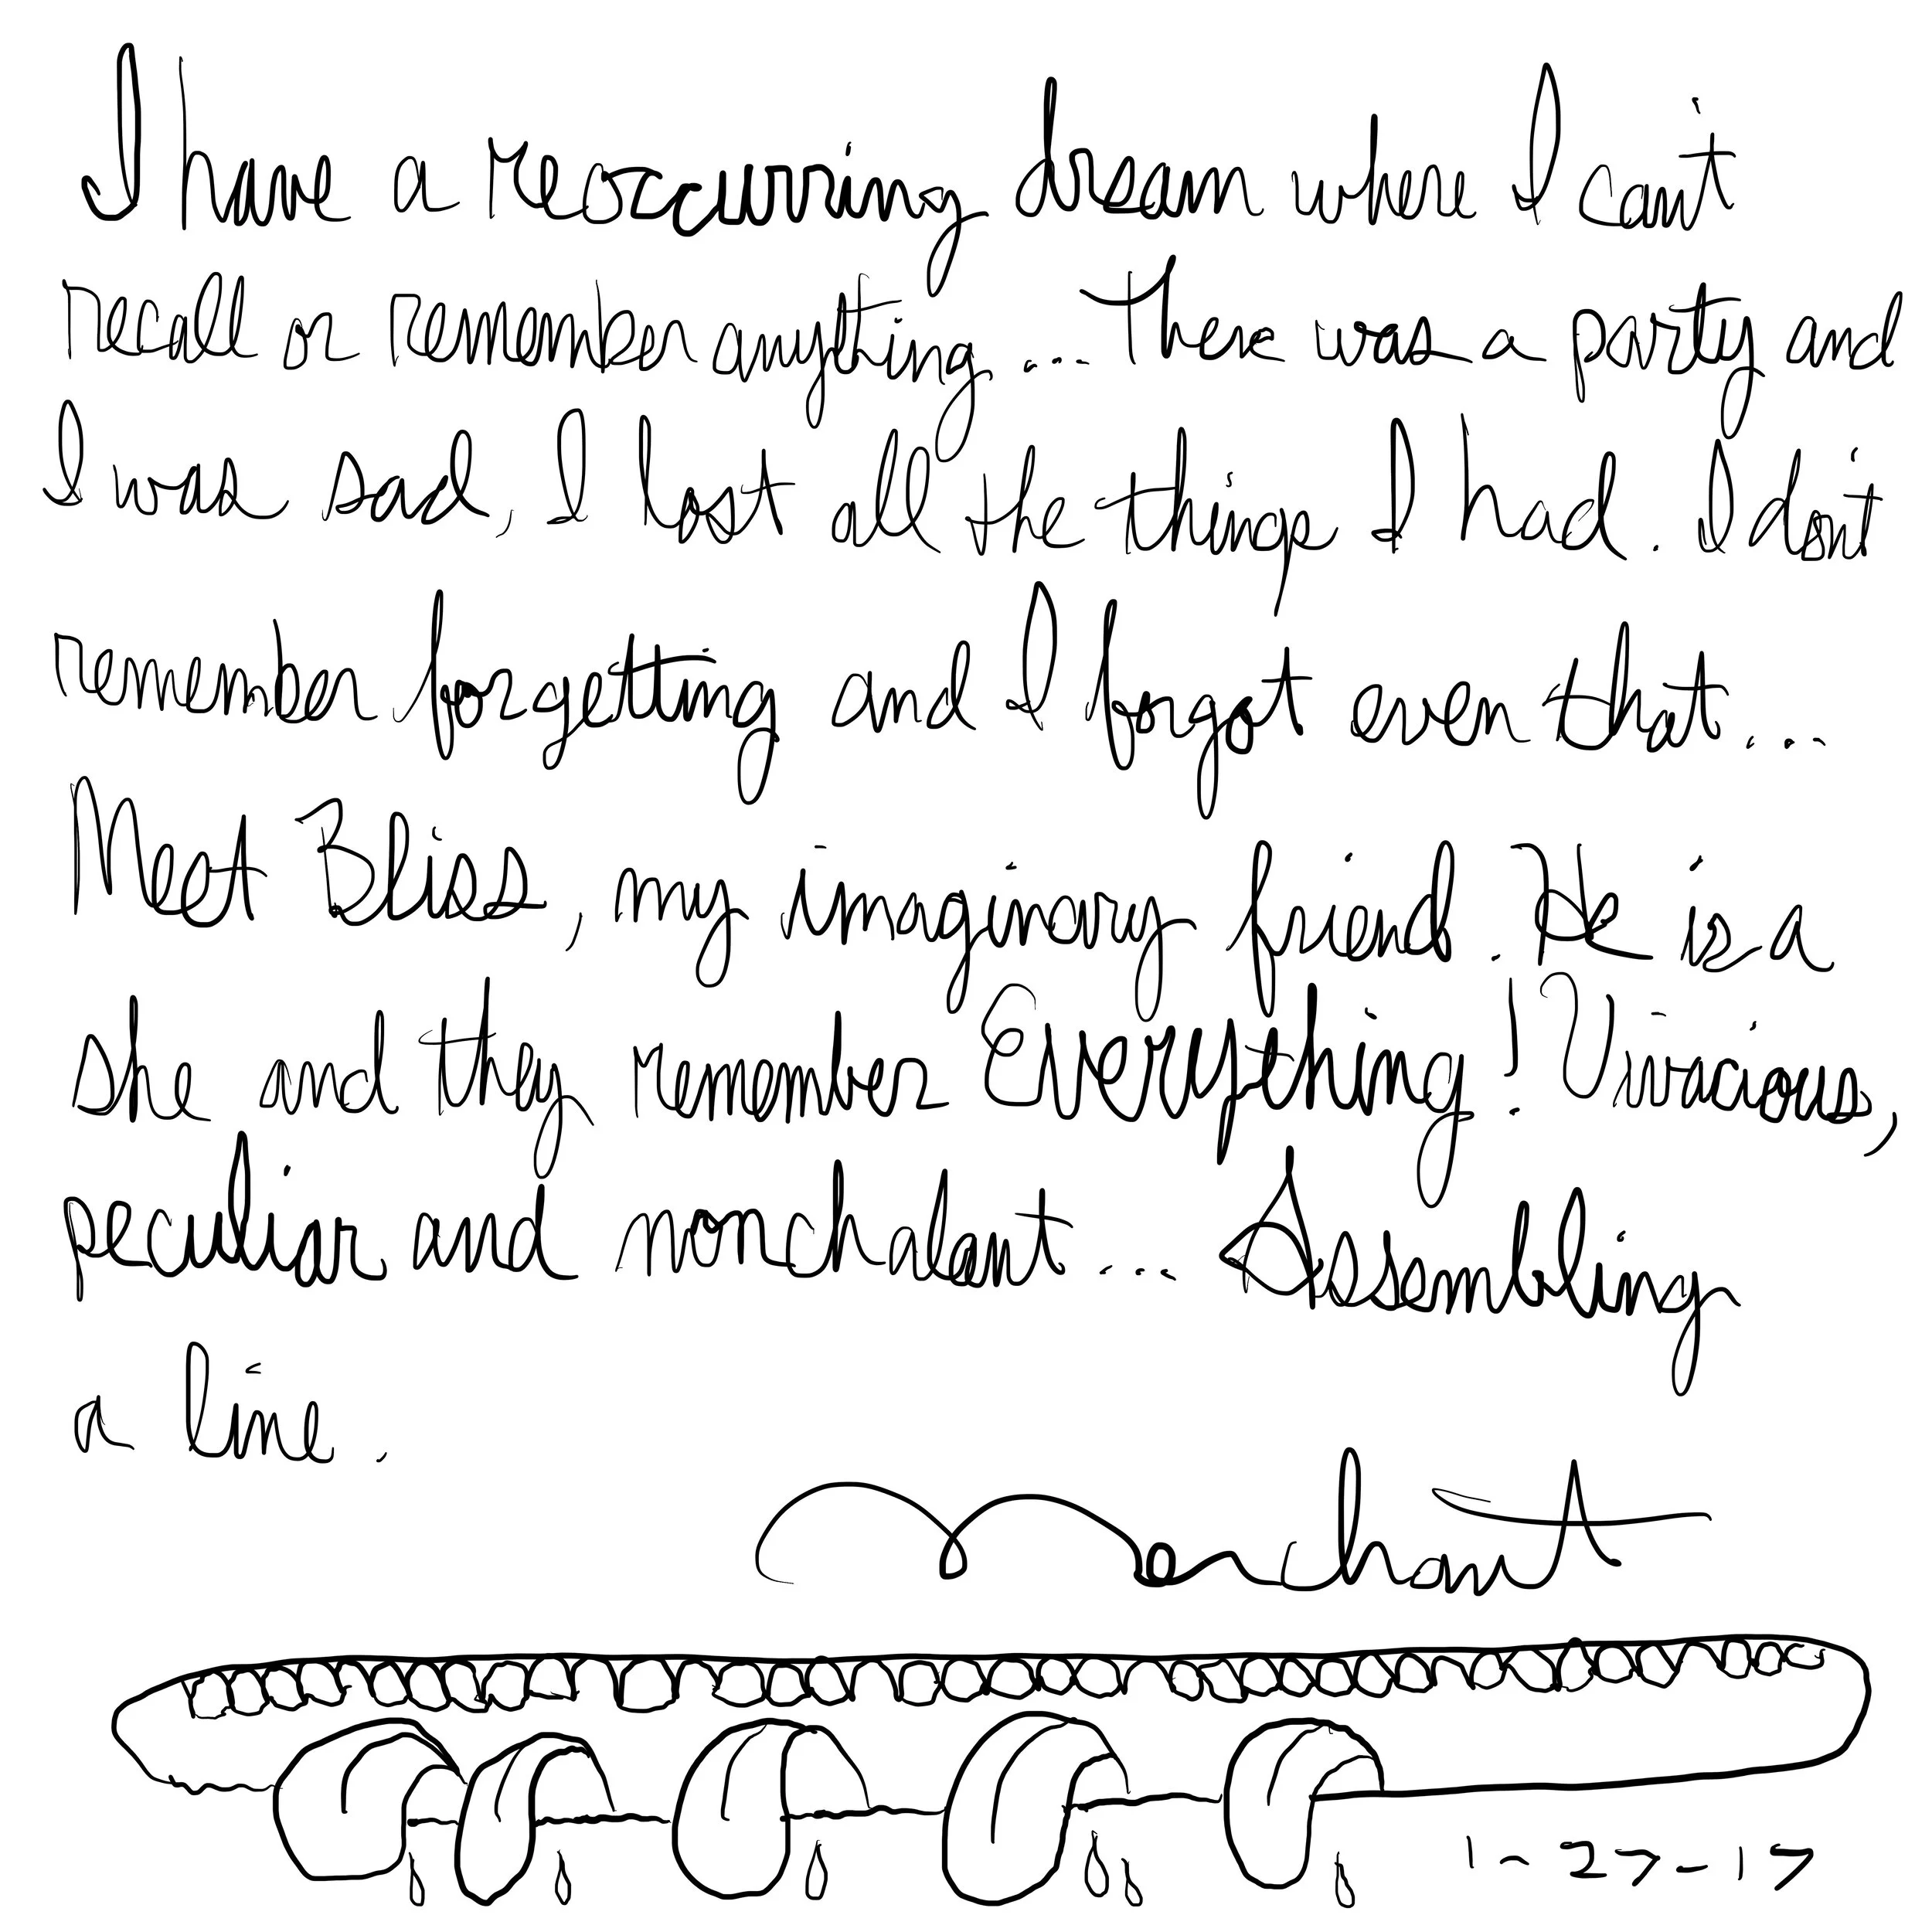 I have a rescurring dream where I can't
recall or remember anything... There was a party and
I was sad, I lost all the things I had. I don't
remember forgetting and I forgot even that...
Meet Bliss, my imaginary friend. He is a
she and they remember Everything! Vivacious,
peculiar and nonchalant... Assembling
a line.
Monchant
1-27-17